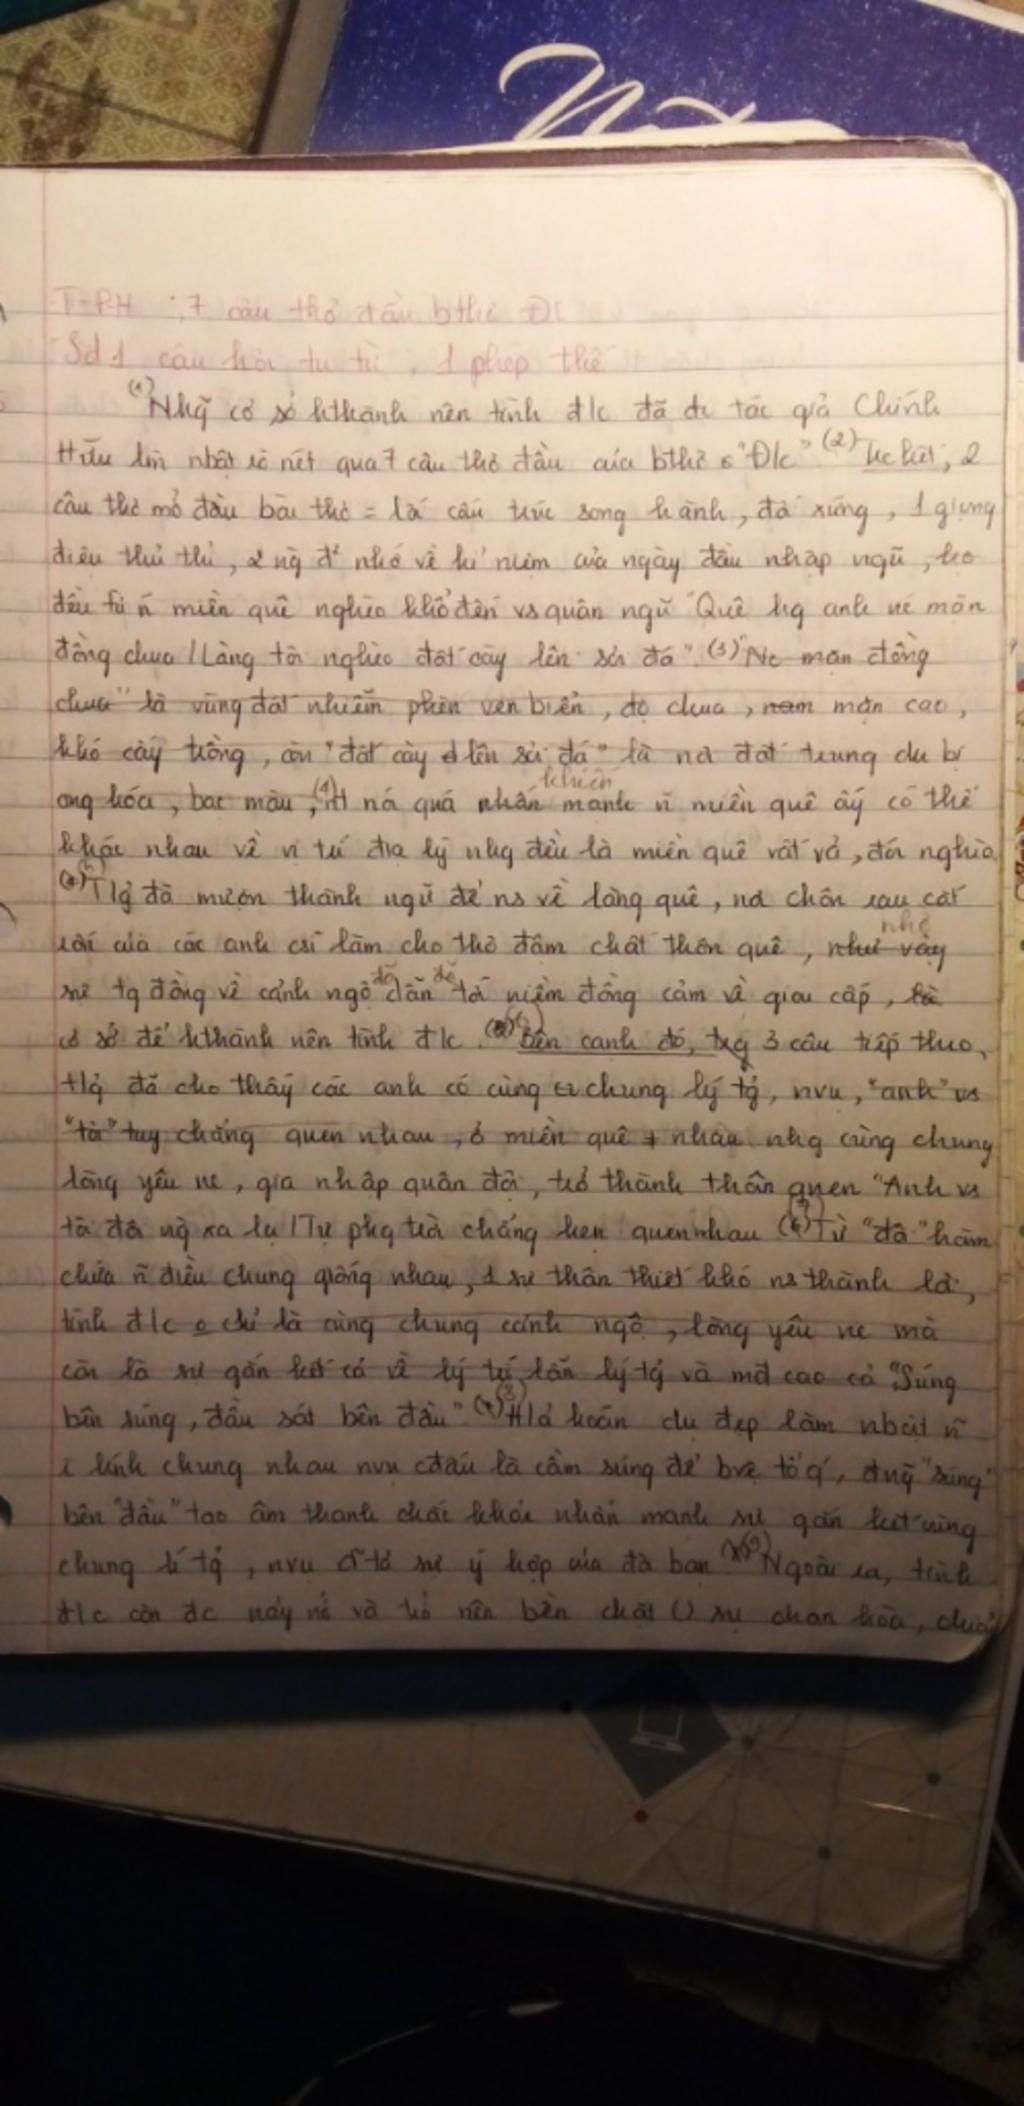 T-P-H : 7 câu thơ đầu bthơ ĐC
Sd 1 câu hỏi tu từ, 1 phép thế
(1) Nhg̃ cơ sở hthành nên tình đ/c đã đc tác giả Chính
Hữu làm nbật rõ nét qua 7 câu thơ đầu của bthơ "Đ/c" (2) Trc hết, 2
câu thơ mở đầu bài thơ = là cấu trúc song hành, đối xứng, 1 giọng
điệu thủ thỉ, 2 ng nhớ về kỉ niệm của ngày đầu nhập ngũ, họ
đều từ ñ miền quê nghèo khổ đến vs quân ngũ "Quê hg anh nc mặn
đồng chua / Làng tôi nghèo đất cày lên sỏi đá" (3) "Nc mặn đồng
chua" là vùng đất nhiễm phèn ven biển, độ chua, mặn cao,
khó cày trồng, còn "đất cày lên sỏi đá" là nơi đất trung du bị
ong hóa, bạc màu, (4) H ná quá nhấn mạnh ñ miền quê ấy có thể
khiến
khác nhau về vị trí địa lý nhg đều là miền quê vất vả, đói nghèo
T/g đã mượn thành ngữ để ns về làng quê, nơi chôn rau cắt
rốn của các anh csĩ làm cho thơ đậm chất thôn quê, như vậy
nhờ
sự tg đồng về cảnh ngộ đã dẫn để tới niềm đồng cảm về giai cấp, là
cơ sở để hthành nên tình đ/c. Bên cạnh đó, trg 3 câu tiếp theo,
t/g đã cho thấy các anh có cùng chung lý tg, nvụ, "anh" vs
"tôi" tuy chẳng quen nhau, ở miền quê ≠ nhau nhg cùng chung
lòng yêu nc, gia nhập quân đội, trở thành thân quen "Anh vs
tôi đôi ng xa lạ / Tự phg trời chẳng hẹn quen nhau Từ "đôi" hàm
chứa ñ điều chung giống nhau, 1 sự thân thiết khó ns thành lời,
tình đ/c o chỉ là cùng chung cảnh ngộ, lòng yêu nc mà
còn là sự gắn kết cả về lý trí lẫn lý tg và mđ cao cả "Súng
bên súng, đầu sát bên đầu" (8) H/ả hoán dụ đẹp làm nbật ñ
lính chung nhau nvụ cđấu là cầm súng để bvệ tổ q', "súng"
bên "đầu" tạo âm thanh chắc khỏe nhấn mạnh sự gắn kết cùng
chung lí tg, nvụ sự ý hợp của đôi bạn (9) Ngoài ra, tình
đ/c còn đc nảy nở và trở nên bền chặt () sự chan hòa, chia